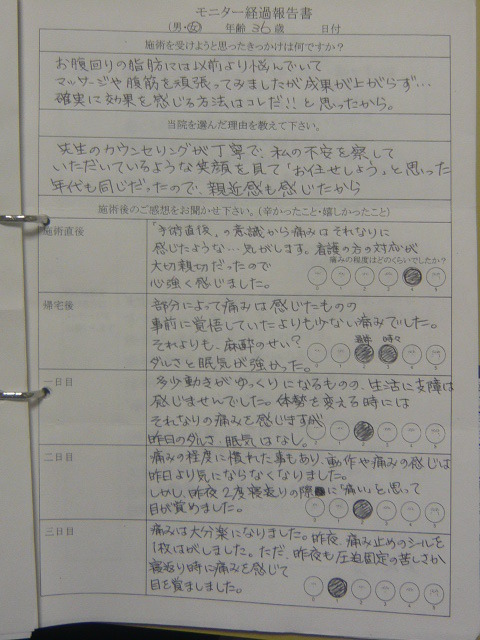 モニター経過報告書
(男・女) 年齢 36歳 日付
施術を受けようと思ったきっかけは何ですか?
お腹回りの脂肪には以前より悩んでいて
マッサージや腹筋を頑張ってみましたが成果が上がらず…
確実に効果を感じる方法はコレだ!!と思ったから。
当院を選んだ理由を教えて下さい。
先生のカウンセリングが丁寧で、私の不安を察して
いただいているような笑顔を見て「お任せしよう」と思った
年代も同じだったので、親近感も感じたから
施術後のご感想をお聞かせ下さい。(辛かったこと・嬉しかったこと)
施術直後
"手術直後"の意識から痛みはそれなりに
感じたような…気がします。看護の方の対応が
痛みの程度はどのくらいでしたか?
大切親切だったので
心強く感じました。
帰宅後
部分によって痛みは感じたものの
事前に覚悟していたよりも少ない痛みでした。
それよりも、麻酔のせい?
通常 時々
ダルさと眠気が強かった。
一日目
多少動きがゆっくりになるものの、生活に支障は
感じませんでした。体勢を変える時には
それなりの痛みを感じますが
昨日のダルさ、眠気はなし。
二日目
痛みの程度に慣れた事もあり、動作や痛みの感じは
昨日より気にならなくなりました。
しかし、昨夜2度寝返りの際に「痛い」と思って
目が覚めました。
三日目
痛みは大分楽になりました。昨夜、痛み止めのシールを
1枚はがしました。ただ、昨夜も圧迫固定の苦しさか
寝返り時に痛みを感じて
目を覚ましました。